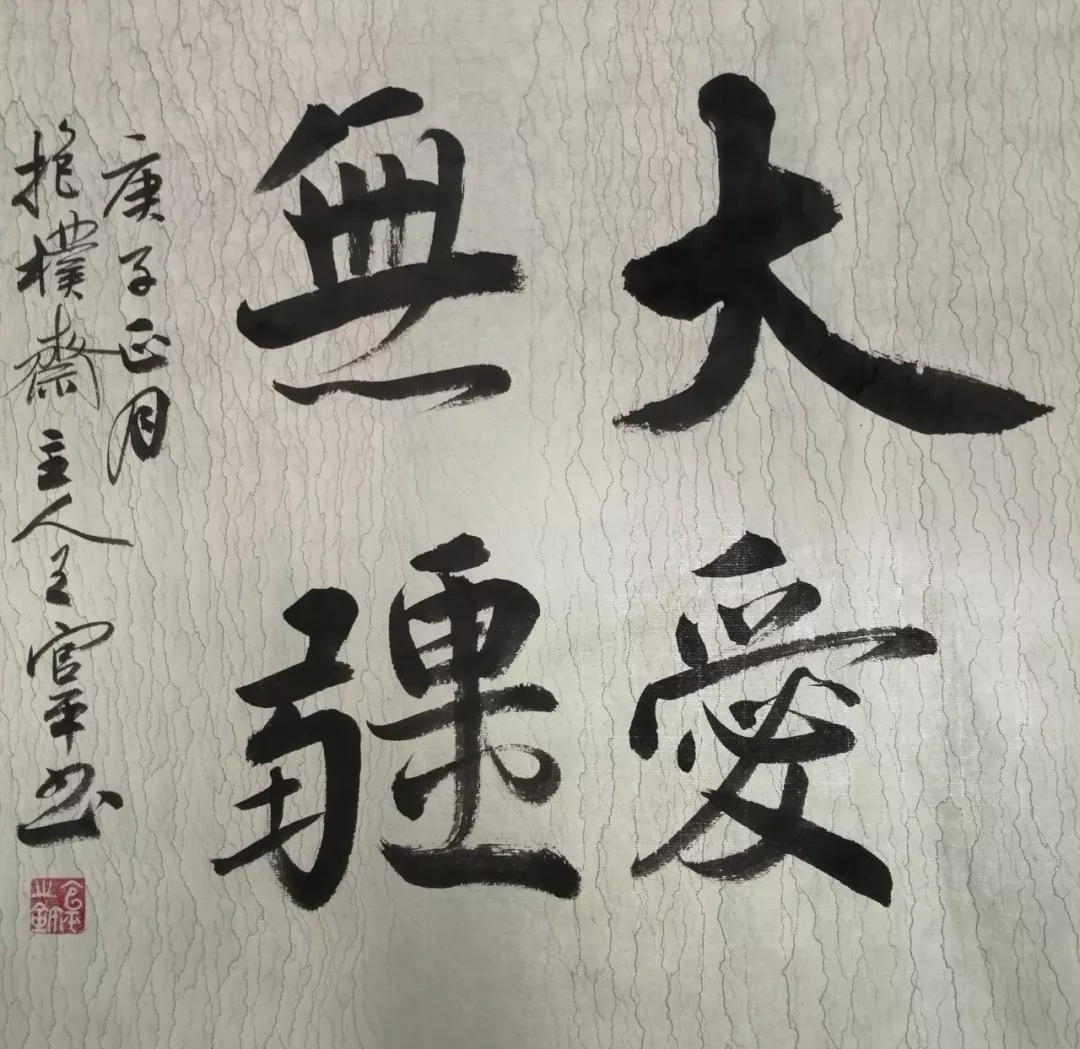 大愛
無疆
庚子正月
抱樸齋主人王官平书